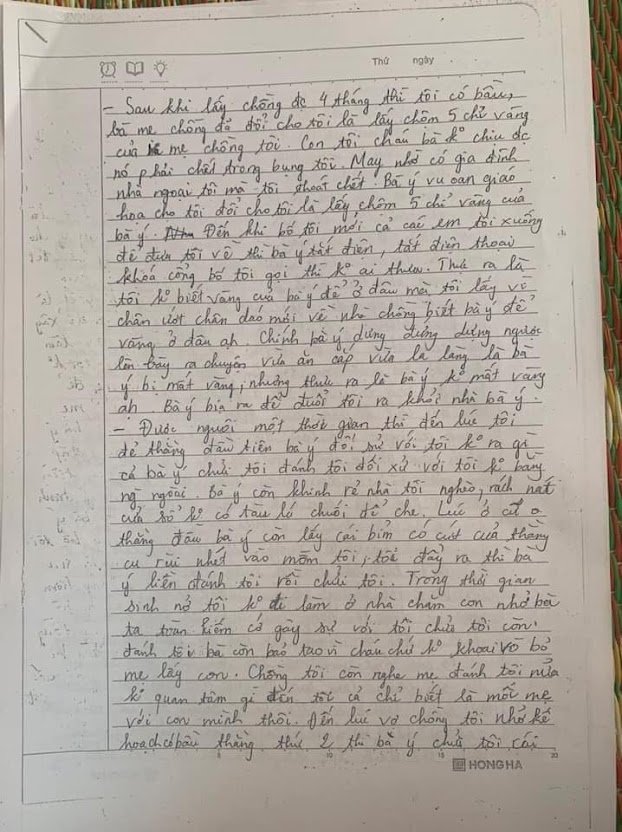 Thứ ngày
- Sau khi lấy chồng dc 4 tháng thì tôi có bầu,
bà mẹ chồng đã đổi cho tôi là lấy chôm 5 chỉ vàng
của mẹ chồng tôi. Con tôi cháu bà kº chiu dc
nó phải chết trong bụng tôi. May nhờ có gia đình
nhà ngoại tôi mà tôi thoát chết. Bà ý vu oan giao
hoạ cho tôi đổi cho tôi là lấy chôm 5 chỉ vàng của
bà ý. Đến khi bố tôi mới cả các em tôi xuống
để đưa tôi về thì bà ý tắt điện, tắt điện thoại
khóa cổng bố tôi gọi thì kº ai thưa. Thực ra là
tôi kº biết vàng của bà ý để ở đâu mà tôi lấy vì
chân ướt chân dáo mới về nhà chồng biết bà ý để
vàng ở đâu ạh. Chính bà ý dựng đứng dựng ngược
lên bày ra chuyện vừa ăn cắp vừa la làng là bà
ý bị mất vàng, nhưng thực ra là bà ý kº mất vàng
ạh. Bà ý bịa ra để đuổi tôi ra khỏi nhà bà ý.
- Được nguôi một thời gian thì đến lúc tôi
đẻ thằng đầu tiên bà ý đối sử với tôi kº ra gì
cả bà ý chửi tôi đánh tôi đối xử với tôi kº bằng
ng ngoài. Bà ý còn khinh rẻ nhà tôi nghèo, rách nát
cửa sổ kº có tàu lá chuối để che. Lúc ở cữ
thằng đầu bà ý còn lấy cái bỉm có cứt của thằng
cu rúi nhét vào mồm tôi, tôi đẩy ra thì bà
ý liền đánh tôi rồi chửi tôi. Trong thời gian
sinh nở tôi kº đi làm ở nhà chăm con nhỏ bà
ta toàn kiếm cớ gây sự với tôi chửi tôi còn
đánh tôi bà còn bảo tao vì cháu chứ kº khoai vồ bỏ
mẹ lấy con. Chồng tôi còn nghe mẹ đánh tôi nữa
kº quan tâm gì đến tôi cả chỉ biết là mỗi mẹ
với con mình thôi. Đến lúc vợ chồng tôi nhỡ kế
hoạch có bầu thằng thứ 2 thì bà ý chửi tôi cái
5 10 15 20
HONG HA